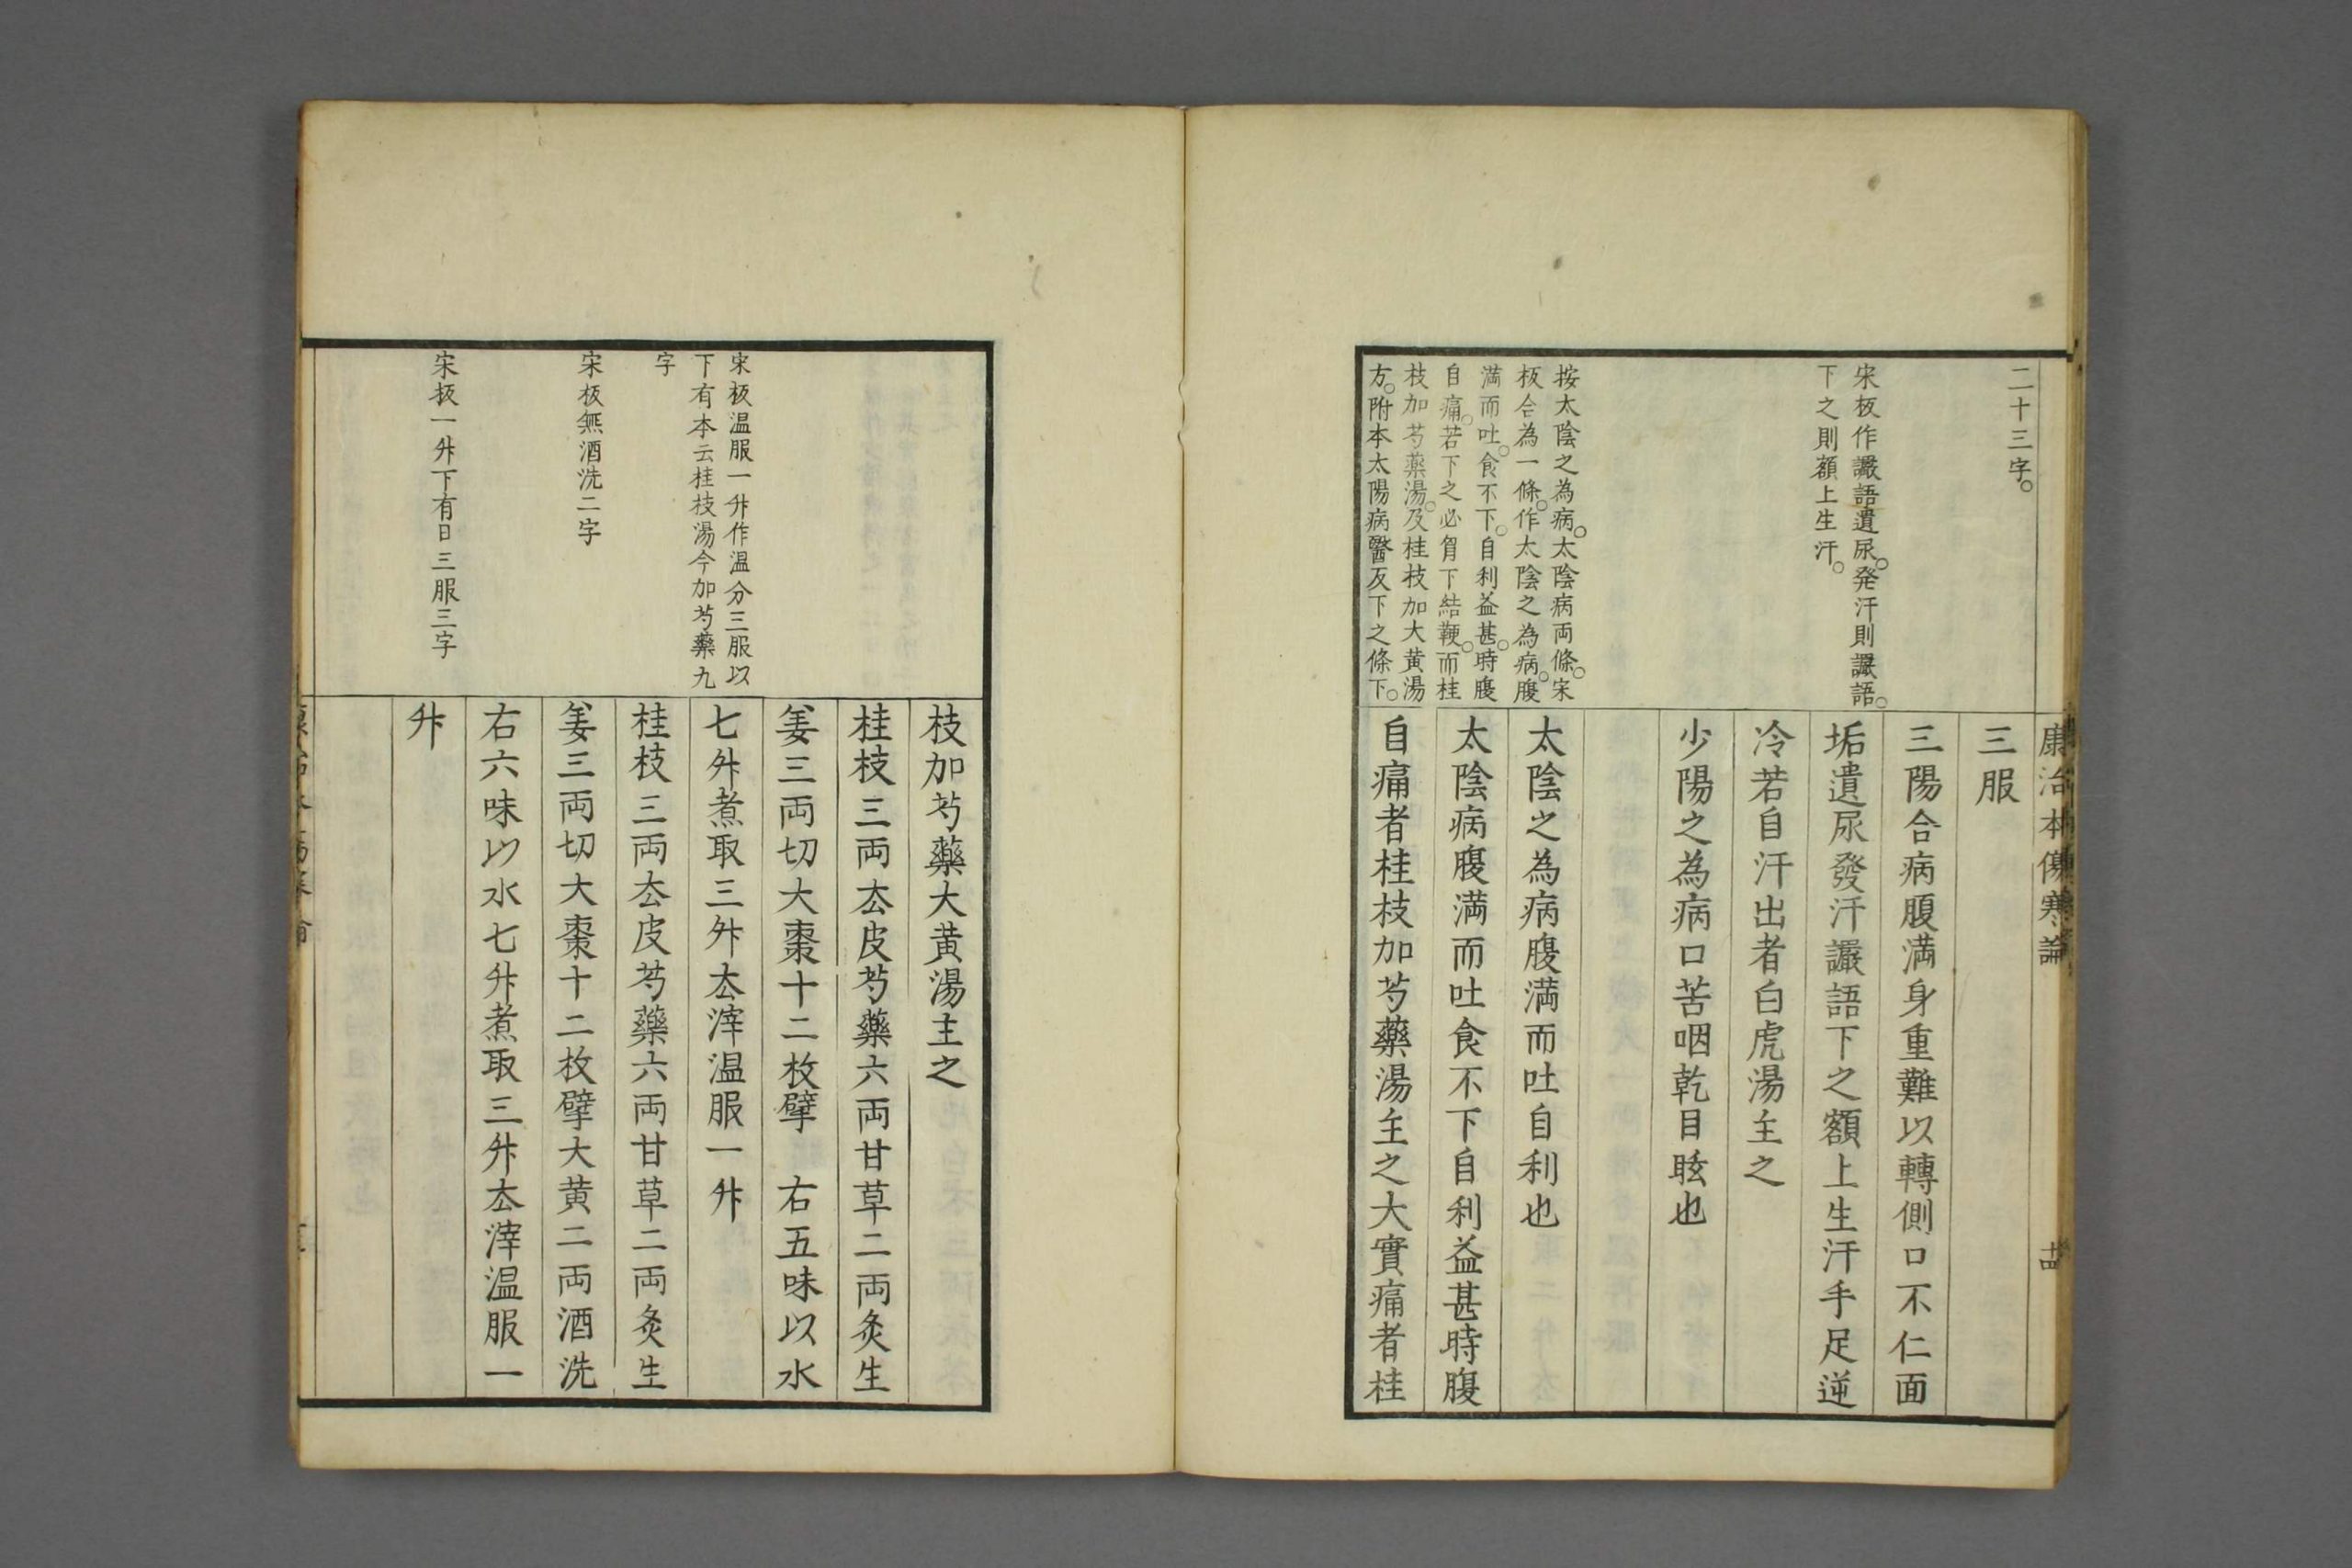 康治本傷寒論
十四
二十三字。
宋板作譫語遺尿。発汗則譫語。
下之則額上生汗。
按太陰之為病。太陰病両條。宋
板合為一條。作太陰之為病。腹
満而吐。食不下。自利益甚。時腹
自痛。若下之必胷下結鞕。而桂
枝加芍薬湯。及桂枝加大黄湯
方。附本太陽病醫反下之條下。
三服
三陽合病腹満身重難以轉側口不仁面
垢遺尿發汗讝語下之額上生汗手足逆
冷若自汗出者白虎湯主之
少陽之為病口苦咽乾目眩也
太陰之為病腹満而吐自利也
太陰病腹満而吐食不下自利益甚時腹
自痛者桂枝加芍藥湯主之大實痛者桂
宋板温服一升作温分三服以
下有本云桂枝湯今加芍藥九
字
宋板無酒洗二字
宋板一升下有日三服三字
枝加芍藥大黄湯主之
桂枝三両去皮芍藥六両甘草二両炙生
姜三両切大棗十二枚擘 右五味以水
七升煮取三升去滓温服一升
桂枝三両去皮芍藥六両甘草二両炙生
姜三両切大棗十二枚擘大黄二両酒洗
右六味以水七升煮取三升去滓温服一
升